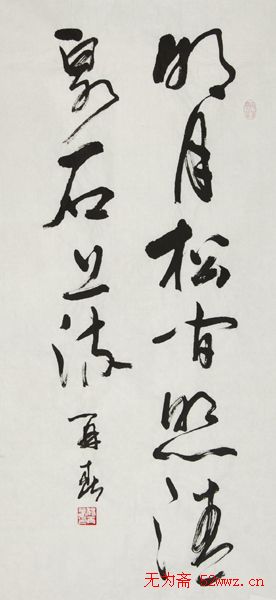 明月松间照清
泉石上流
再春
无为斋 52wwz.cn